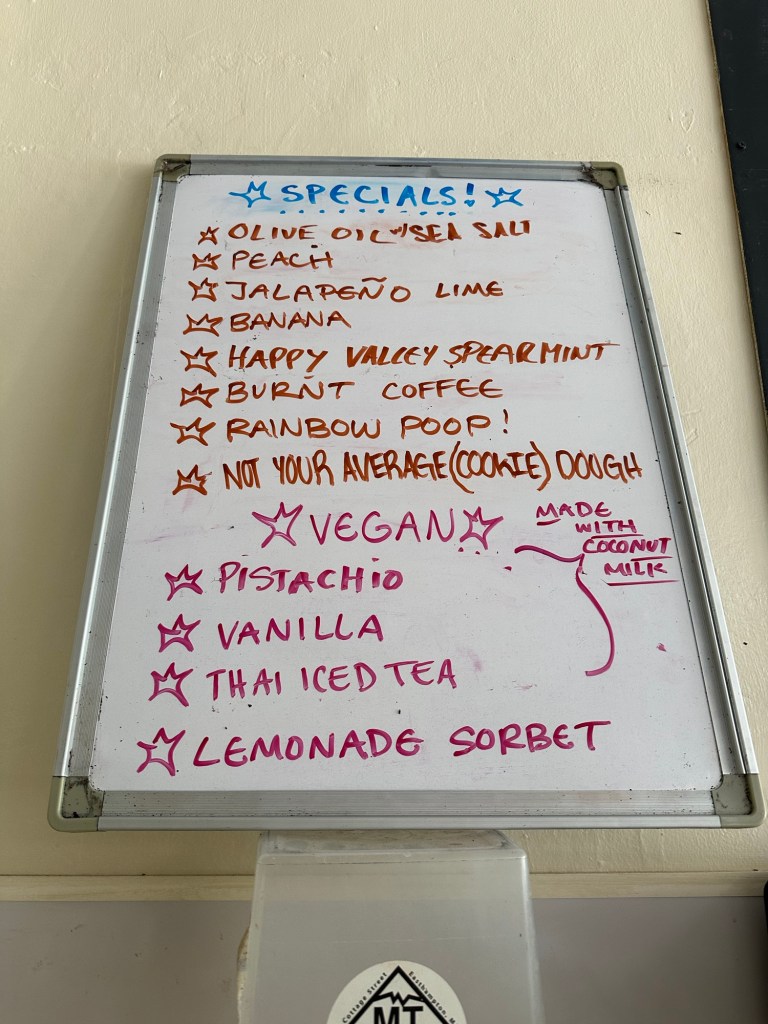 SPECIALS!
OLIVE OIL w/SEA SALT
PEACH
JALAPEÑO LIME
BANANA
HAPPY VALLEY SPEARMINT
BURNT COFFEE
RAINBOW POOP!
NOT YOUR AVERAGE (COOKIE) DOUGH
VEGAN
MADE
WITH
COCONUT
MILK
PISTACHIO
VANILLA
THAI ICED TEA
LEMONADE SORBET
Cottage Street Easthampton, M
MT